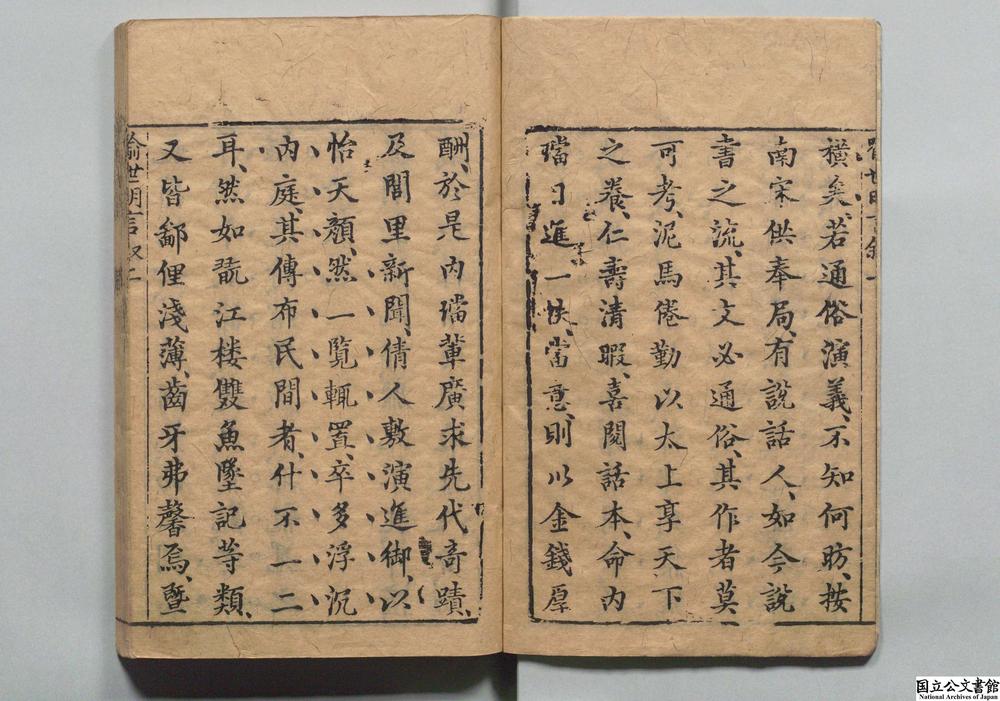 橫矣、若通俗演義、不知何昉、按
南宋供奉局、有說話人、如今說
書之流、其文必通俗、其作者莫
可考、泥馬倦勤以太上享天下
之養、仁壽清暇、喜閱話本、命內
璫日進一帙、當意、則以金錢厚
酬、於是內璫輩廣求先代奇蹟、
及閭里新聞、倩人敷演進御、以
怡天顏、然一覽輒置、卒多浮沉
內庭、其傳布民間者、什不一二
耳、然如翫江楼雙魚墜記等類、
又皆鄙俚淺薄、齒牙弗馨焉、暨
喻世明言 叙二
国立公文書館
National Archives of Japan